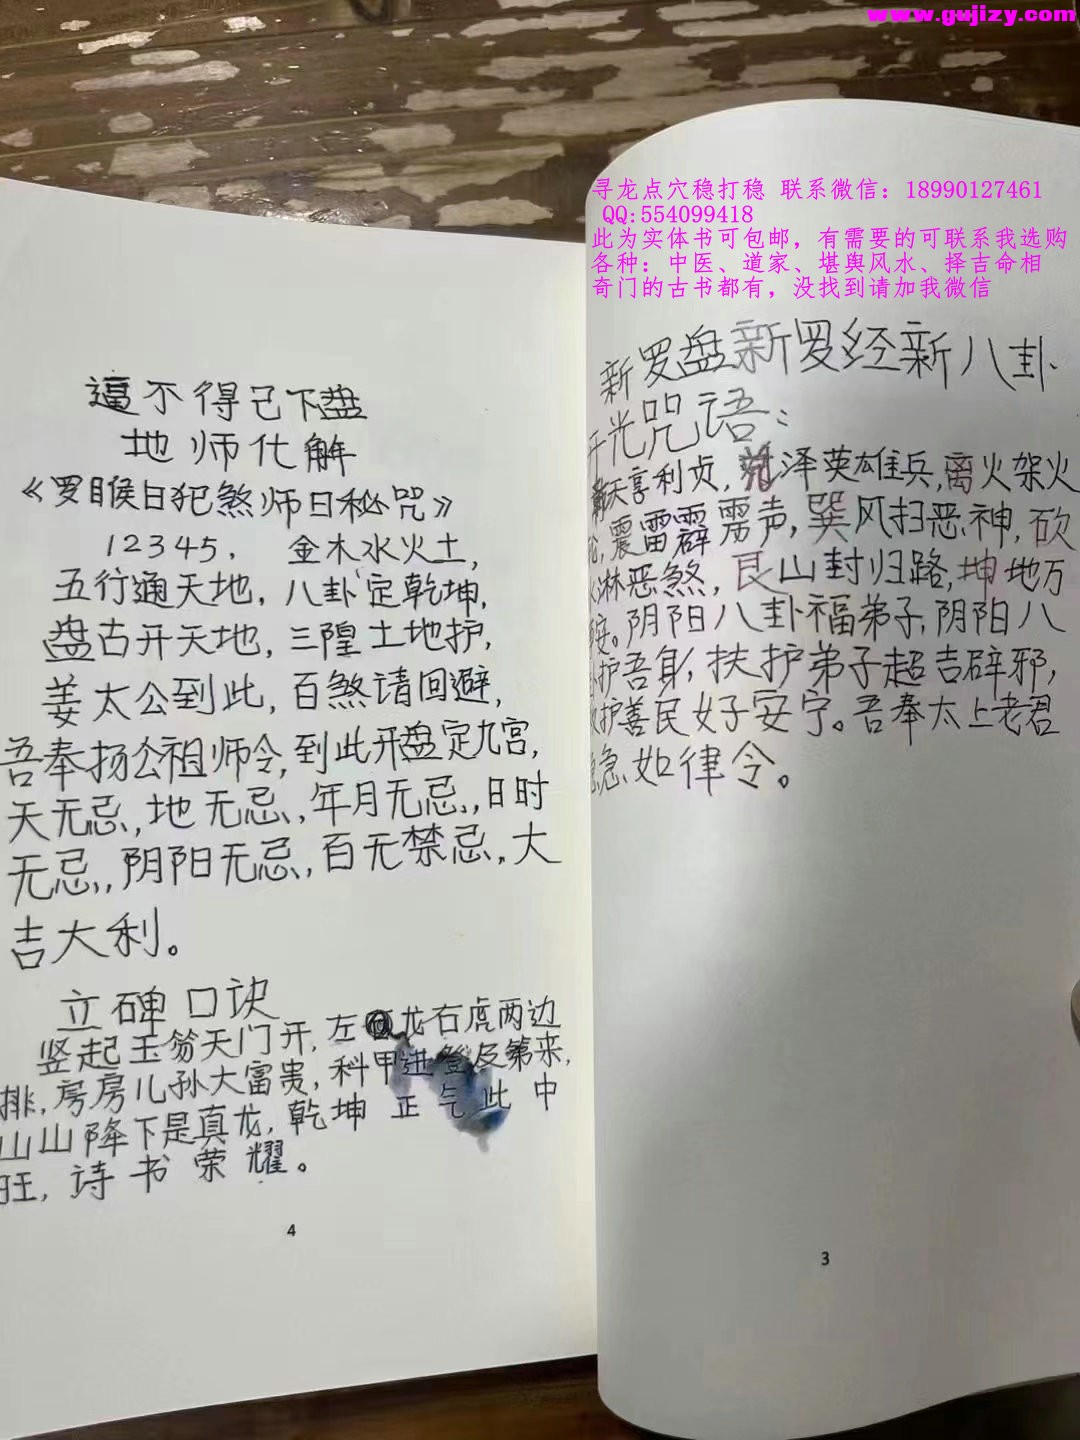 www.gujizy.com
寻龙点穴稳打稳 联系微信：18990127461
QQ:554099418
此为实体书可包邮，有需要的可联系我选购
各种：中医、道家、堪舆风水、择吉命相
奇门的古书都有，没找到请加我微信
逼不得已下盘
地师化解
《罗睺日犯煞师日秘咒》
12345， 金木水火土，
五行通天地，八卦定乾坤，
盘古开天地，三隍土地护，
姜太公到此，百煞请回避，
吾奉扬公祖师令，到此开盘定九宫，
天无忌，地无忌，年月无忌，日时
无忌，阴阳无忌，百无禁忌，大
吉大利。
立碑口诀
竖起玉笏天门开，左龙右虎两边
排，房房儿孙大富贵，科甲进登及第来，
山山降下是真龙，乾坤正气此中
旺，诗书荣耀。
4
新罗盘新罗经新八卦
开光咒语：
天亨利贞，兑泽英雄兵，离火架火
轮，震雷霹雳声，巽风扫恶神，砍
淋恶煞，艮山封归路，坤地万
安。阴阳八卦福弟子，阴阳八
护吾身，扶护弟子超吉辟邪，
护善民好安宁。吾奉太上老君
急急如律令。
3